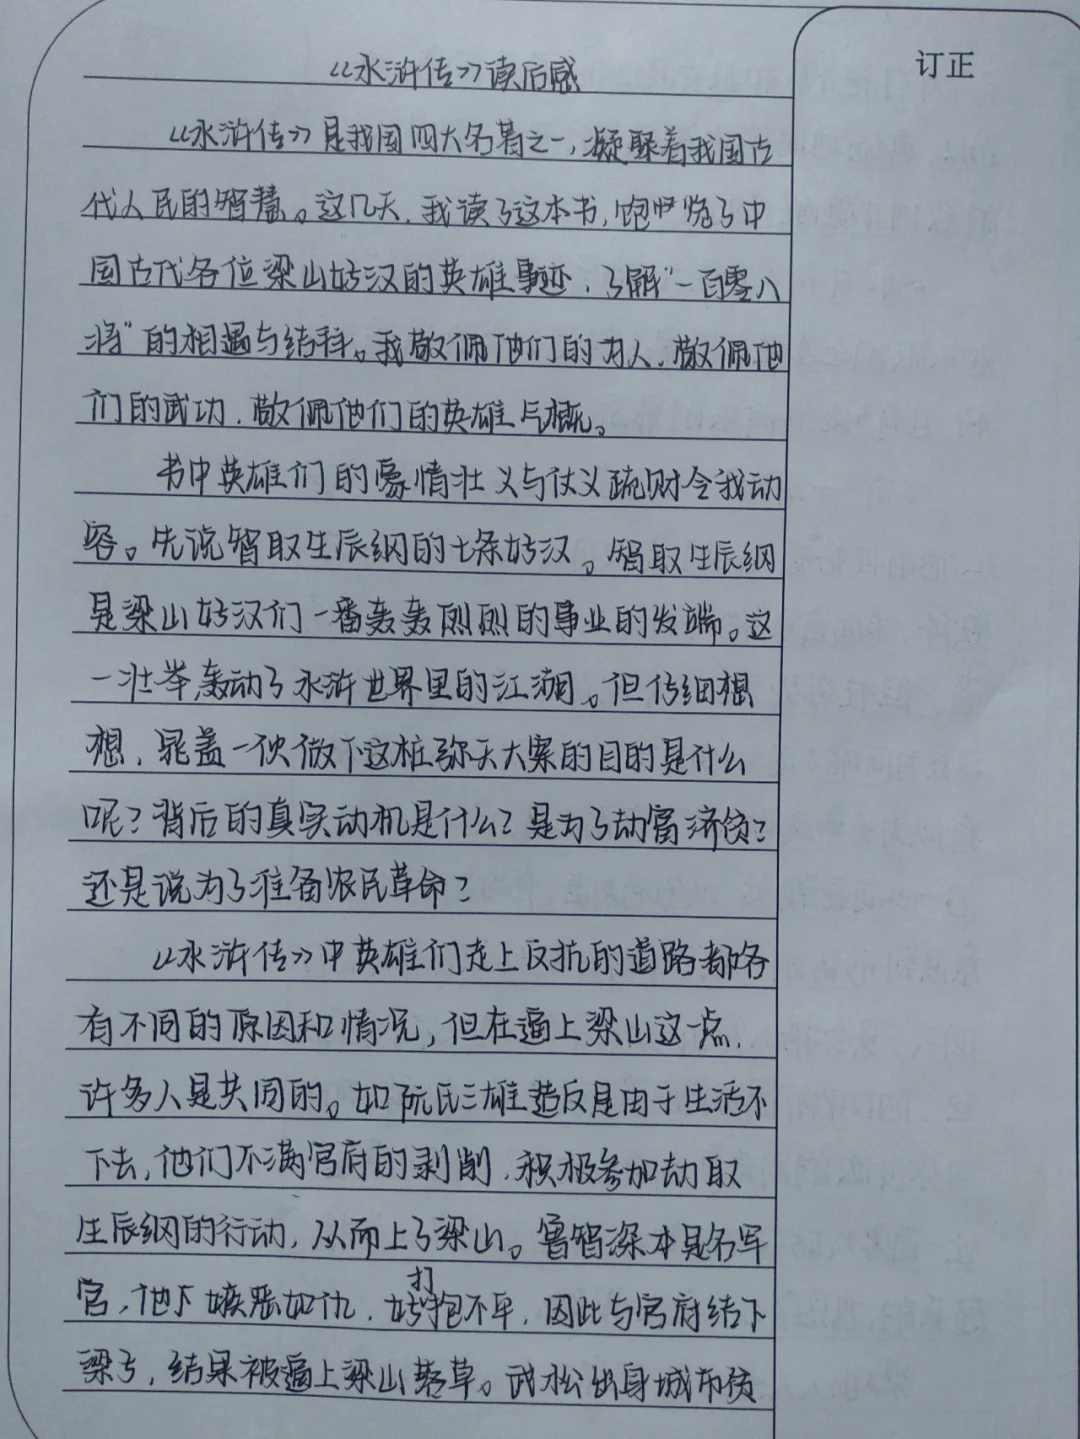 《水浒传》读后感
订正
《水浒传》是我国四大名著之一,凝聚着我国古
代人民的智慧。这几天,我读了这本书,饱览了中
国古代各位梁山好汉的英雄事迹,了解“一百零八
将”的相遇与结拜。我敬佩他们的为人,敬佩他
们的武功,敬佩他们的英雄气概。
书中英雄们的豪情壮义与仗义疏财令我动
容。先说智取生辰纲的七条好汉。智取生辰纲
是梁山好汉们一番轰轰烈烈的事业的发端。这
一壮举,轰动了水浒世界里的江湖。但仔细想
想,晁盖一伙做下这桩弥天大案的目的是什么
呢?背后的真实动机是什么?是为了劫富济贫?
还是说为了准备农民革命?
《水浒传》中英雄们走上反抗的道路都各
有不同的原因和情况,但在逼上梁山这一点,
许多人是共同的。如阮氏三雄造反是由于生活不
下去,他们不满官府的剥削,积极参加劫取
生辰纲的行动,从而上了梁山。鲁智深本是名军
官,他下嫉恶如仇,好打抱不平,因此与官府结下
梁子,结果被逼上梁山落草。武松出身城市贫